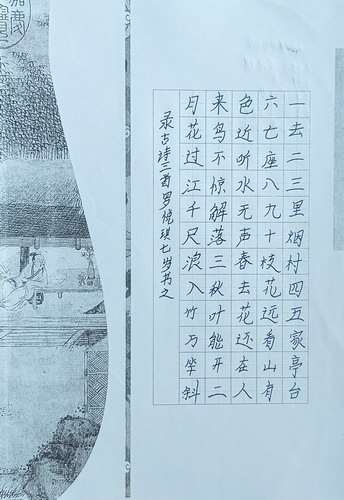 一去二三里烟村四五家亭台
六七座八九十枝花远看山有
色近听水无声春去花还在人
来鸟不惊解落三秋叶能开二
月花过江千尺浪入竹万竿斜
录古诗三首罗琪七岁书之